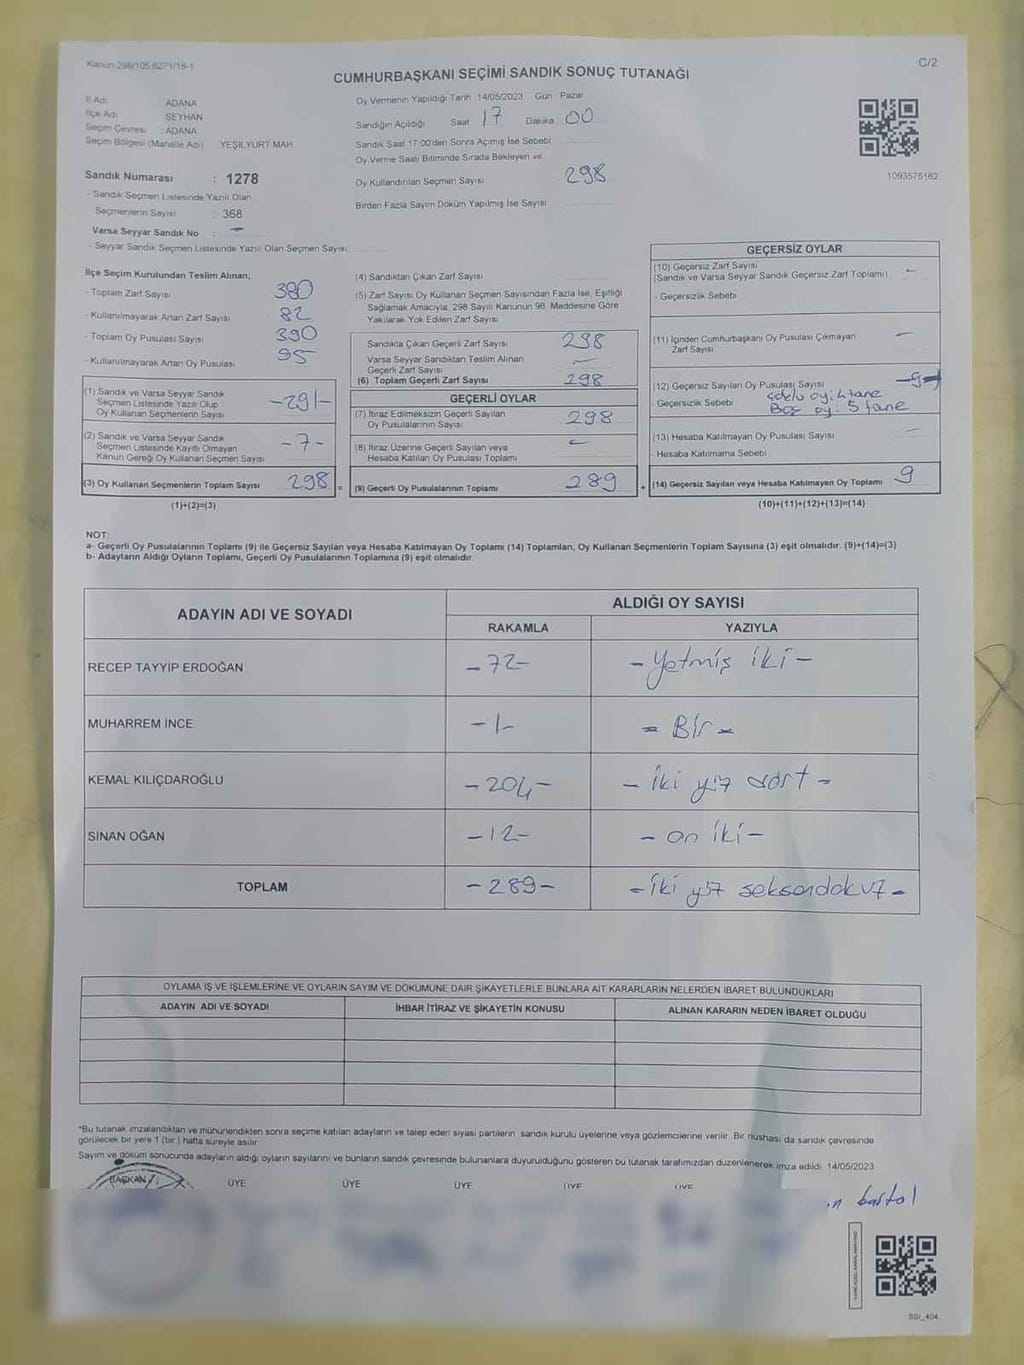 Kanun 298/105,6271/18-1
C/2
CUMHURBAŞKANI SEÇİMİ SANDIK SONUÇ TUTANAĞI
İl Adı ADANA
İlçe Adı SEYHAN
Seçim Çevresi : ADANA
Seçim Bölgesi (Mahalle Adı) YEŞİLYURT MAH
Sandık Numarası : 1278
- Sandık Seçmen Listesinde Yazılı Olan
Seçmenlerin Sayısı : 368
Varsa Seyyar Sandık No : -
- Seyyar Sandık Seçmen Listesinde Yazılı Olan Seçmen Sayısı
Oy Vermenin Yapıldığı Tarih 14/05/2023 Gün Pazar
Sandığın Açıldığı Saat 17 Dakika 00
Sandık Saat 17.00'den Sonra Açımış İse Sebebi
Oy Verme Saati Bitiminde Sırada Bekleyen ve
Oy Kullandırılan Seçmen Sayısı 298
Birden Fazla Sayım Döküm Yapılmış İse Sayısı
1093575162
İlçe Seçim Kurulundan Teslim Alınan;
- Toplam Zarf Sayısı 380
- Kullanılmayarak Artan Zarf Sayısı 82
- Toplam Oy Pusulası Sayısı 390
- Kullanılmayarak Artan Oy Pusulası 95
(1) Sandık ve Varsa Seyyar Sandık
Seçmen Listesinde Yazılı Olup
Oy Kullanan Seçmenlerin Sayısı -291-
(2) Sandık ve Varsa Seyyar Sandık
Seçmen Listesinde Kayıtlı Olmayan
Kanun Gereği Oy Kullanan Seçmen Sayısı -7-
(3) Oy Kullanan Seçmenlerin Toplam Sayısı 298 =
(1)+(2)=(3)
(4) Sandıktan Çıkan Zarf Sayısı
(5) Zarf Sayısı Oy Kullanan Seçmen Sayısından Fazla İse, Eşitliği
Sağlamak Amacıyla, 298 Sayılı Kanunun 98. Maddesine Göre
Yakılarak Yok Edilen Zarf Sayısı
Sandıkta Çıkan Geçerli Zarf Sayısı 298
Varsa Seyyar Sandıktan Teslim Alınan
Geçerli Zarf Sayısı -
(6) Toplam Geçerli Zarf Sayısı 298
GEÇERLİ OYLAR
(7) İtiraz Edilmeksizin Geçerli Sayılan
Oy Pusulalarının Sayısı 298
(8) İtiraz Üzerine Geçerli Sayılan veya
Hesaba Katılan Oy Pusulası Toplamı -
(9) Geçerli Oy Pusulalarının Toplamı 289 +
GEÇERSİZ OYLAR
(10) Geçersiz Zarf Sayısı
(Sandık ve Varsa Seyyar Sandık Geçersiz Zarf Toplamı) -
- Geçersizlik Sebebi
(11) İçinden Cumhurbaşkanı Oy Pusulası Çıkmayan
Zarf Sayısı -
(12) Geçersiz Sayılan Oy Pusulası Sayısı -9-
- Geçersizlik Sebebi oyi: 4 tane
Boş oyi: 5 tane
(13) Hesaba Katılmayan Oy Pusulası Sayısı -
- Hesaba Katılmama Sebebi
(14) Geçersiz Sayılan veya Hesaba Katılmayan Oy Toplamı 9
(10)+(11)+(12)+(13)=(14)
NOT:
a- Geçerli Oy Pusulalarının Toplamı (9) ile Geçersiz Sayılan veya Hesaba Katılmayan Oy Toplamı (14) Toplamları, Oy Kullanan Seçmenlerin Toplam Sayısına (3) eşit olmalıdır. (9)+(14)=(3)
b- Adayların Aldığı Oyların Toplamı, Geçerli Oy Pusulalarının Toplamına (9) eşit olmalıdır.
ADAYIN ADI VE SOYADI
ALDIĞI OY SAYISI
RAKAMLA YAZIYLA
RECEP TAYYİP ERDOĞAN -72- -Yetmiş iki-
MUHARREM İNCE -1- - Bir -
KEMAL KILIÇDAROĞLU -204- - İki yüz dört -
SİNAN OĞAN -12- - on iki-
TOPLAM -289- -İki yüz seksendokuz-
OYLAMA İŞ VE İŞLEMLERİNE VE OYLARIN SAYIM VE DÖKÜMÜNE DAİR ŞİKAYETLERLE BUNLARA AİT KARARLARIN NELERDEN İBARET BULUNDUKLARI
ADAYIN ADI VE SOYADI İHBAR İTİRAZ VE ŞİKAYETİN KONUSU ALINAN KARARIN NEDEN İBARET OLDUĞU
*Bu tutanak imzalandıktan ve mühürlendikten sonra seçime katılan adayların ve talep eden siyasi partilerin sandık kurulu üyelerine veya gözlemcilerine verilir. Bir nüshası da sandık çevresinde
görülecek bir yere 1 (bir ) hafta süreyle asılır.
Sayım ve döküm sonucunda adayların aldığı oyların sayılarını ve bunların sandık çevresinde bulunanlara duyurulduğunu gösteren bu tutanak tarafımızdan düzenlenerek imza edildi. 14/05/2023
BAŞKAN ÜYE ÜYE ÜYE ÜYE ÜYE